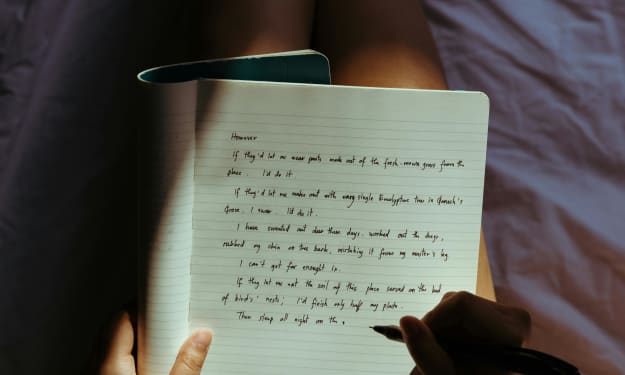 However
If they'd let me wear pants made out of the fresh-mown grass from the
place. I'd do it.
If they'd let me make out with every single Eucalyptus tree in
Grove. I swear. I'd do it.
I have sweated out dew these days, worked out the dregs,
rubbed my chin on the bark, mistaking it my master's leg
I can't get far enough in.
If they let me eat the soil of this place served on the bed
of birds' nests; I'd finish only half my plate.
Then sleep all night on the